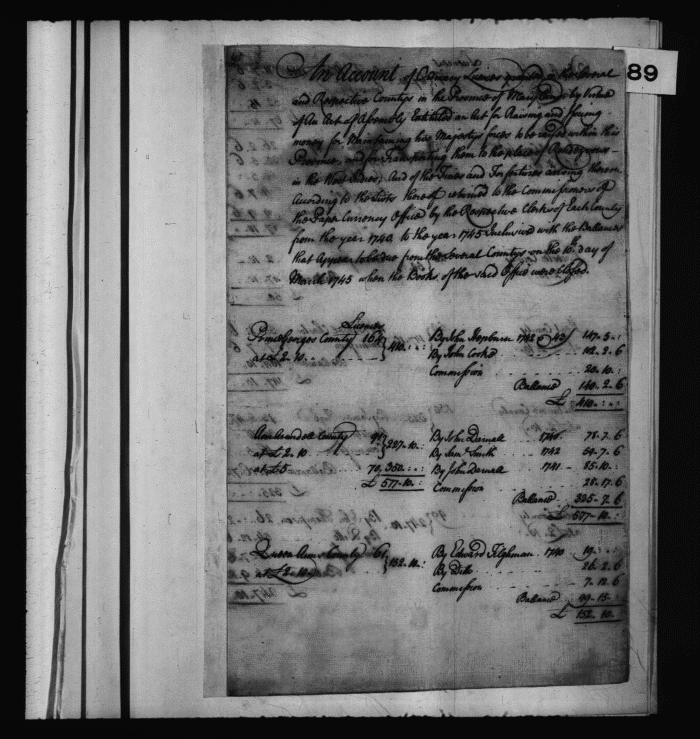 89
An Account of Ordinary Licenses granted in the Several
and Respective Countys in the Province of Maryland by Virtue
of An Act of Assembly Entituled an Act for Raising and Issuing
money for Maintaining his Majestys forces to be raised within this
Province, and for Transporting them to the place of Rendezvous
in the West Indies; And of the Fines and Forfeitures arising thereon
According to the Lists thereof returned to the Commissioners of
the Paper Currency Office by the Respective Clerks of Each County
from the year 1740 to the year 1745 Inclusive with the Ballances
that Appear to be due from the Several Countys on the 10th day of
March 1745 when the Books of the said Office were Closed.
Licenses
Prince Georges County 164 } 410 .. : .. : By John Hepburn 1742 & 43 147 .. 5 .. :
at £ 2 .. 10 .. By John Cooke 102 .. 2 .. 6
Commission 20 .. 10 :
Ballance 140 .. 2 .. 6
£ 410 .. : .. :
Ann Arundell County 91 } 227 .. 10 .. : By John Darnall 1740 78 .. 7 .. 6
at £ 2 .. 10 By Saml. Smith 1742 54 .. 7 .. 6
at £ 5 70 .. 350 .. : .. : By John Darnall 1741 85 .. 10 :
£ 577 .. 10 .. : Commission 28 .. 17 .. 6
Ballance 335 .. 7 .. 6
£ 577 .. 10 .. :
Queen Anns County 61 } 152 .. 10 .. : By Edward Tilghman 1740 19 .. : .. :
at £ 2 .. 10 By Ditto 26 .. 2 .. 6
Commission 7 .. 12 .. 6
Ballance 99 .. 15 .. :
£ 152 .. 10 ..